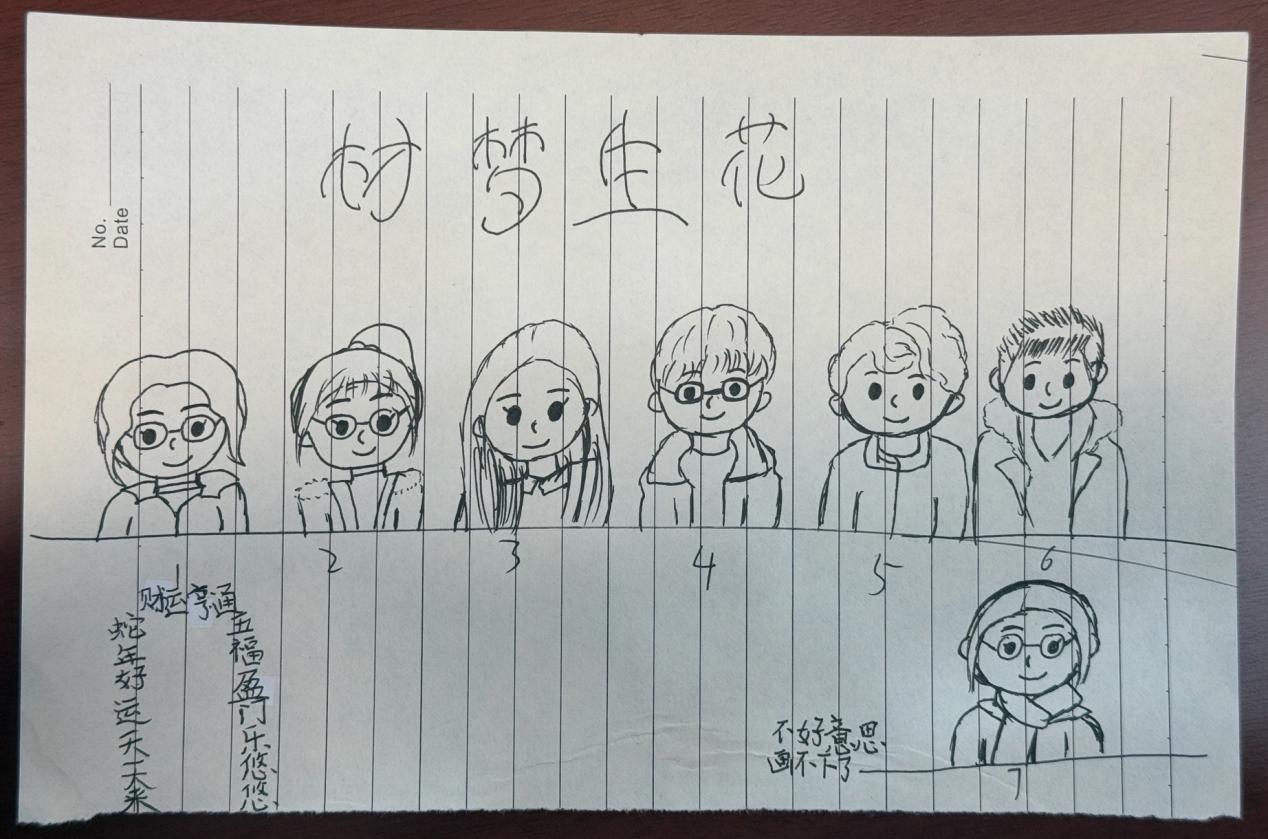 No.
Date
材梦生花
1 2 3 4 5 6
财运亨通
蛇年好运天天来
五福盈门乐悠悠
不好意思
画不下了
7